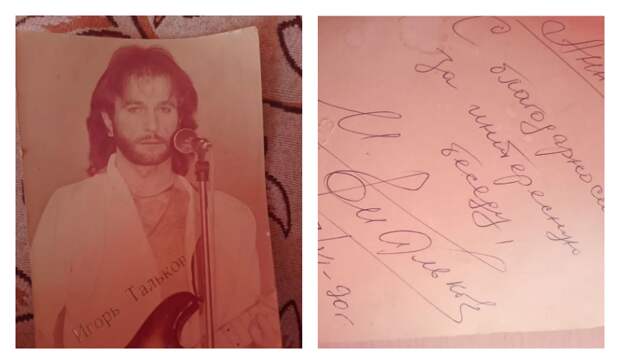 Игорь Тальков
С благодарнос
За интересную
беседу!
И. Тальков